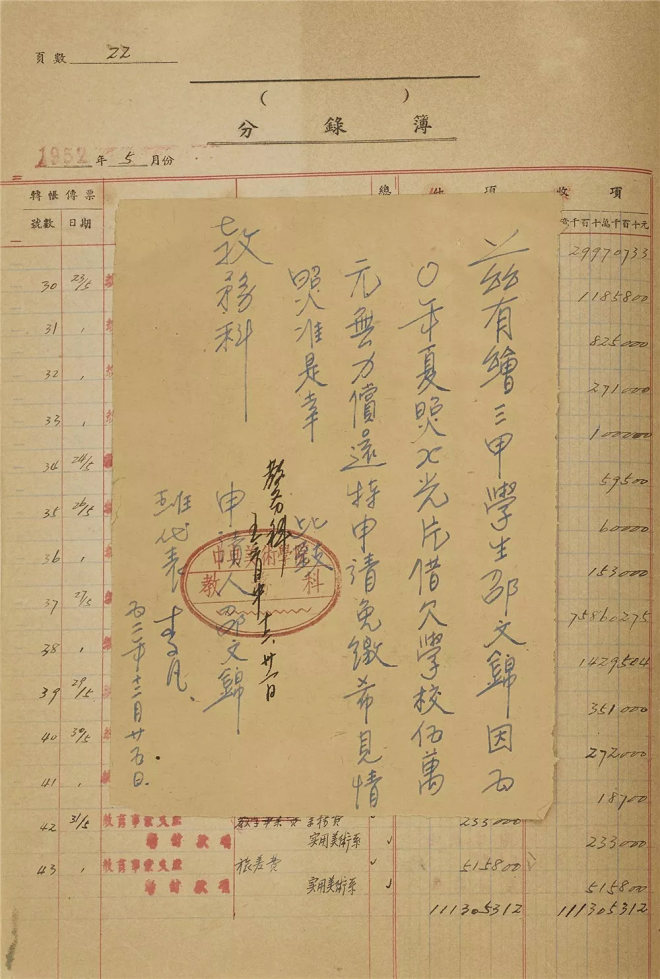 頁數 22
( )
分錄簿
1952年5月份
轉帳傳票 總 項 收項
號數 日期 千百十萬千百十元
29970733
30 23/5 1185800
31 , 825000
32 , 271000
33 , 100000
34 24/5 59500
35 26/5 60000
36 , 153000
37 27/5 75860275
38 , 1429504
39 29/5 351000
40 30/5 272000
41 , 18700
42 31/5 教育事業支出 233000
暫付款項 实用美術系 233000
43 , 教育事業支出 旅差費 515800
暫付款項 实用美術系 515800
111305312 111305312
茲有繪三甲學生邵文錦因五
〇年夏照X光片借欠學校伍萬
元無力償還特申請免繳希見情
照准是幸
此致
教務科
申請人 邵文錦
班代表 李凡
五二年十二月廿五日
教务科
十二、廿六日
中央美術學院
教 科